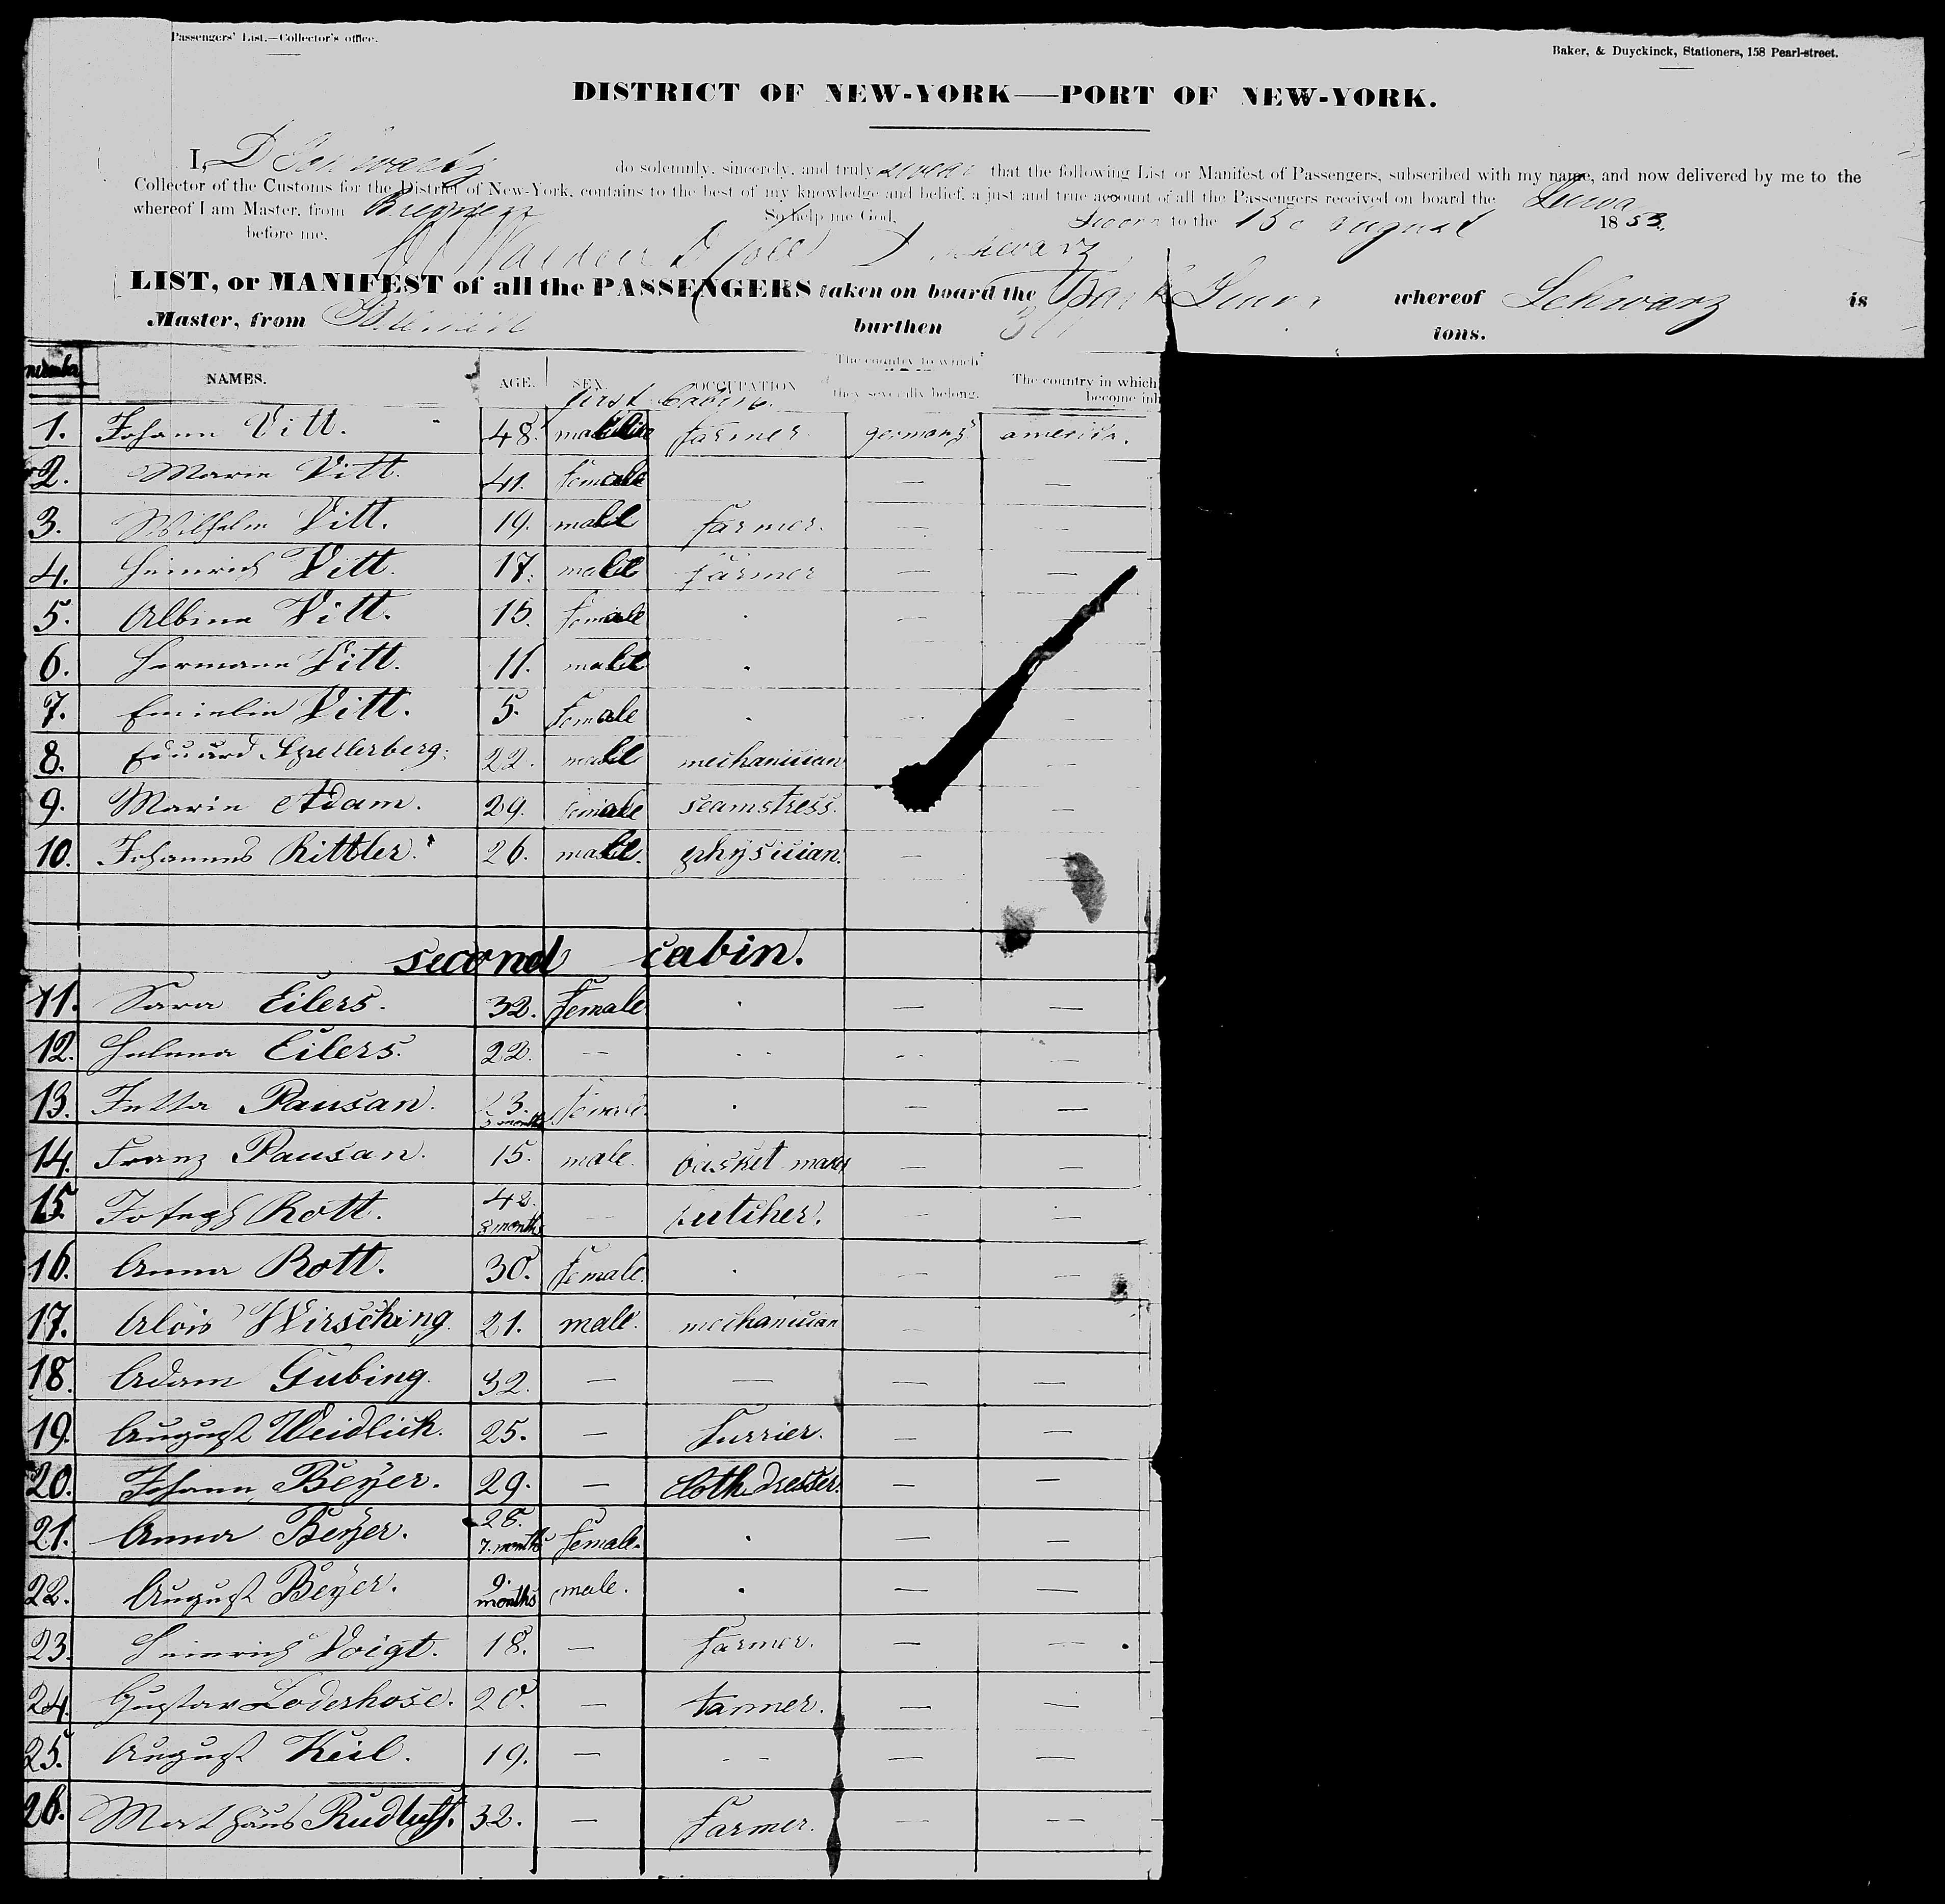 Passengers' List.—Collector's office.
Baker, & Duyckinck, Stationers, 158 Pearl-street.
DISTRICT OF NEW-YORK—PORT OF NEW-YORK.
I, D Schwartz do solemnly, sincerely, and truly swear that the following List or Manifest of Passengers, subscribed with my name, and now delivered by me to the
Collector of the Customs for the District of New-York, contains to the best of my knowledge and belief, a just and true account of all the Passengers received on board the
whereof I am Master, from Bremen So help me God. Sworn to the 15 August 1853.
before me, D Schwarz
LIST, or MANIFEST of all the PASSENGERS taken on board the Bark whereof Schwarz is
Master, from Bremen burthen tons.
number NAMES. AGE. SEX. OCCUPATION The country to which they severally belong. The country in which become inh
first Cabin.
1. Johann Vitt. 48. male farmer germany america.
2. Marie Vitt. 41. female — —
3. Wilhelm Vitt. 19. male farmer. — —
4. Heinrich Vitt. 17. male farmer — —
5. Albine Vitt. 15. female — —
6. Hermann Vitt. 11. male —
7. Emielie Vitt. 5. female — —
8. Eduard Spellerberg. 22. male mechanician —
9. Marie Adam. 29. female seamstress. —
10. Johannes Rittler. 26. male. physician. — —
second cabin.
11. Sara Eilers. 32. female. — —
12. Helena Eilers. 22. — —
13. Jetta Pausan. 23. 3 months female. — —
14. Franz Pausan. 15. male. basket maker — —
15. Joseph Rott. 42. 8 months — butcher. — —
16. Anna Rott. 30. female. — —
17. Alois Wirsching. 21. male. mechanician — —
18. Adam Gubing. 32. — — — —
19. August Weidlich. 25. — furrier. — —
20. Johann Beyer. 29. — Cloth Dresser. — —
21. Anna Beyer. 28. 7. months female. — —
22. August Beyer. 9. months male. — —
23. Heinrich Voigt. 18. — farmer. — —
24. Gustav Loderhose. 20. — tanner. — —
25. August Keil. 19. — - - — —
26. Mathäus Rudluff. 32. — farmer. — —